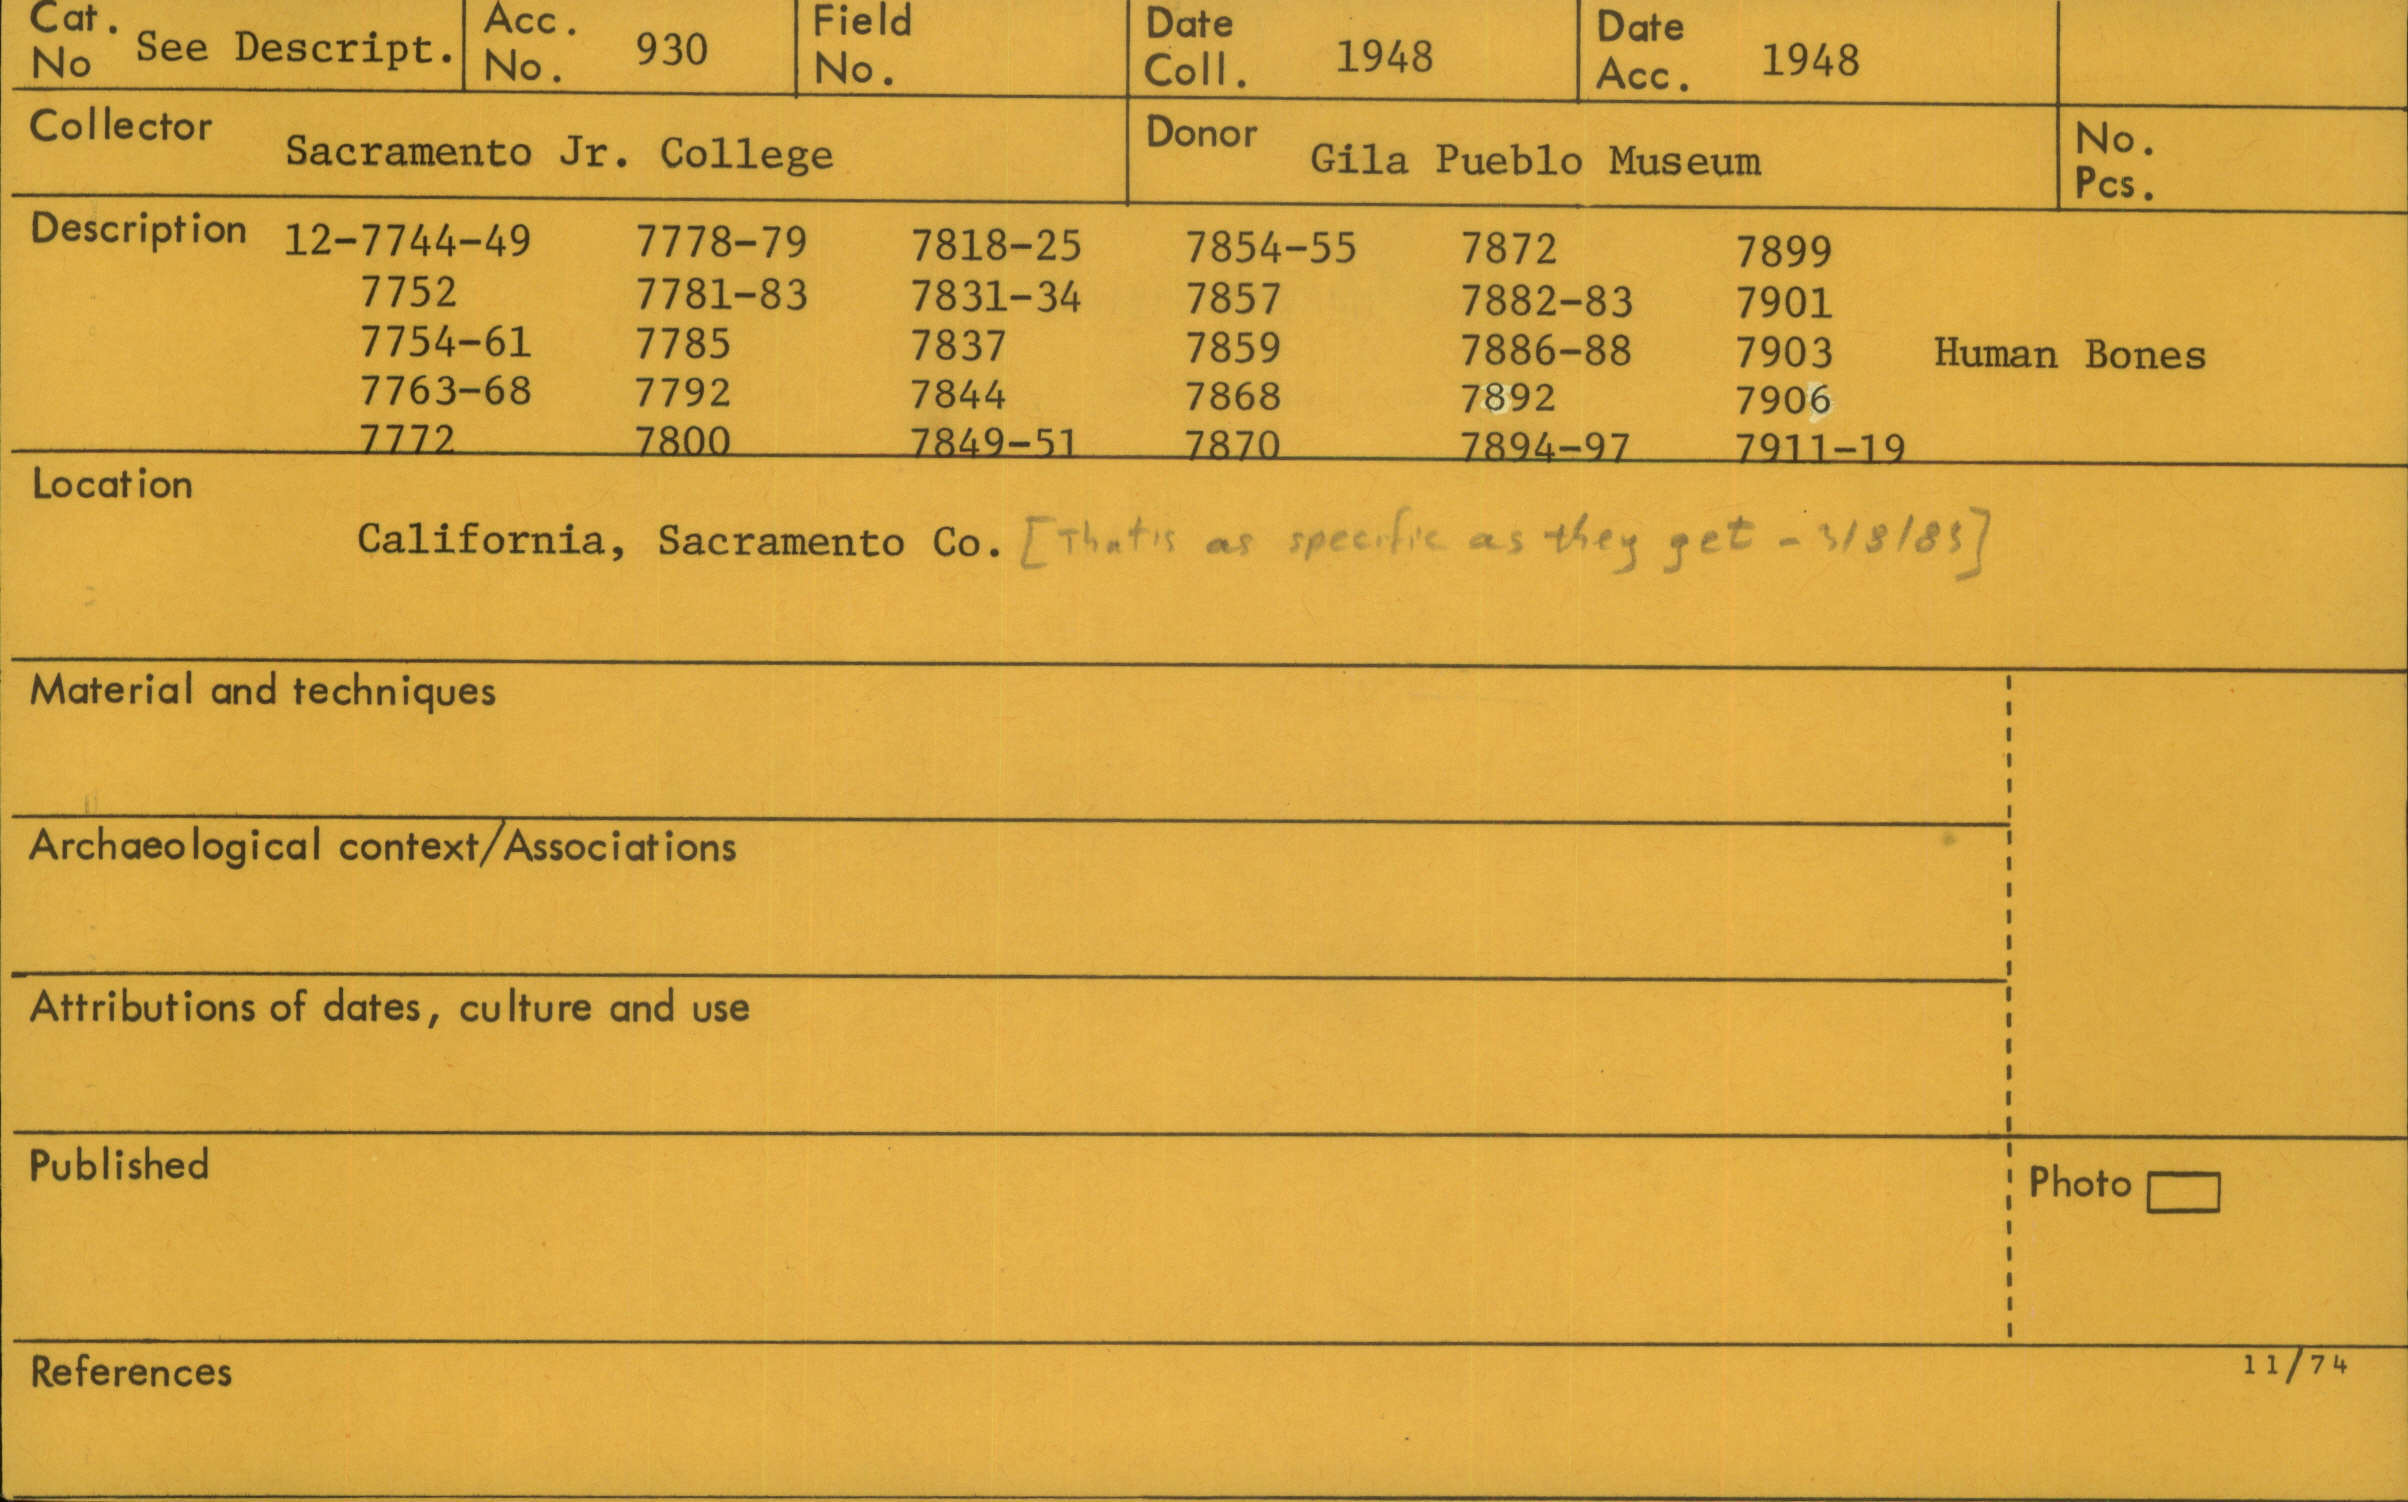 Cat. No See Descript. Acc. No. 930 Field No. Date Coll. 1948 Date Acc. 1948
Collector Sacramento Jr. College Donor Gila Pueblo Museum No. Pcs.
Description 12-7744-49 7778-79 7818-25 7854-55 7872 7899
7752 7781-83 7831-34 7857 7882-83 7901
7754-61 7785 7837 7859 7886-88 7903 Human Bones
7763-68 7792 7844 7868 7892 7906
7772 7800 7849-51 7870 7894-97 7911-19
Location
California, Sacramento Co. [That's as specific as they get - 3/8/83]
Material and techniques
Archaeological context/Associations
Attributions of dates, culture and use
Published
Photo
References
11/74